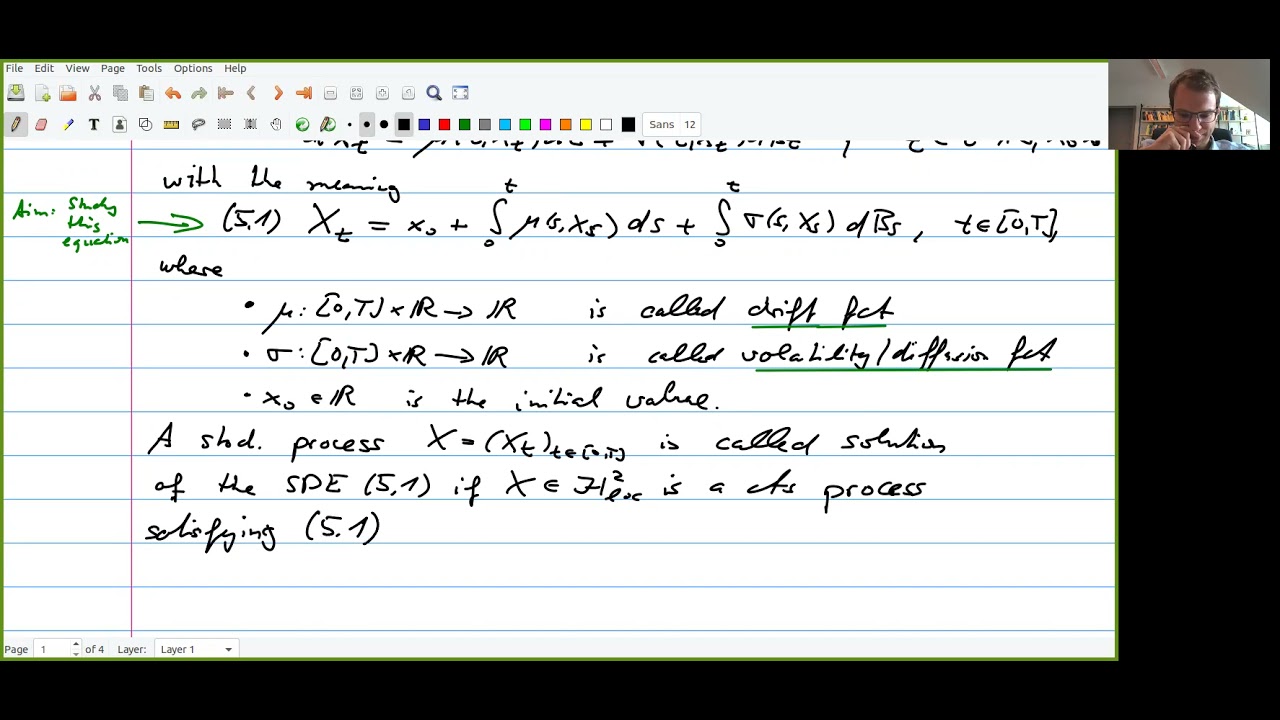 File Edit View Page Tools Options Help
Sans 12
with the meaning
Aim: Study this equation → (5.1) X_t = x_0 + ∫_0^t μ(s, X_s) ds + ∫_0^t σ(s, X_s) dB_s, t ∈ [0,T],
where
• μ: [0,T] × ℝ → ℝ is called drift fct
• σ: [0,T] × ℝ → ℝ is called volatility/diffusion fct
• x_0 ∈ ℝ is the initial value.
A stod. process X = (X_t)_{t∈[0,T]} is called solution
of the SDE (5.1) if X ∈ H^2_{loc} is a cts process
satisfying (5.1)
Page 1 of 4 Layer: Layer 1